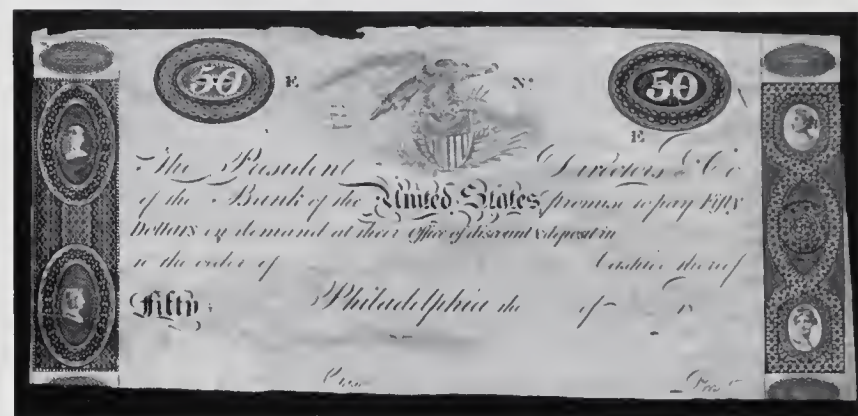 50 E Nº 50
E E
The President Directors & Co
of the Bank of the United States, promise to pay Fifty
Dollars on demand at their Office of discount & deposit in
to the order of Cashier thereof
Fifty Philadelphia the of
Cash Prest